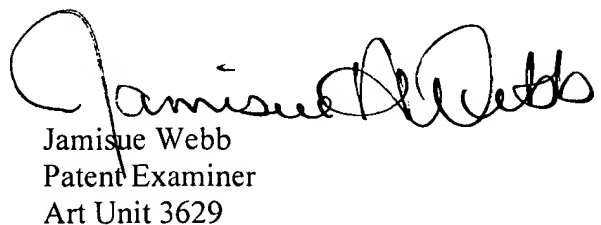 Jamisue A. Webb
Jamisue Webb
Patent Examiner
Art Unit 3629